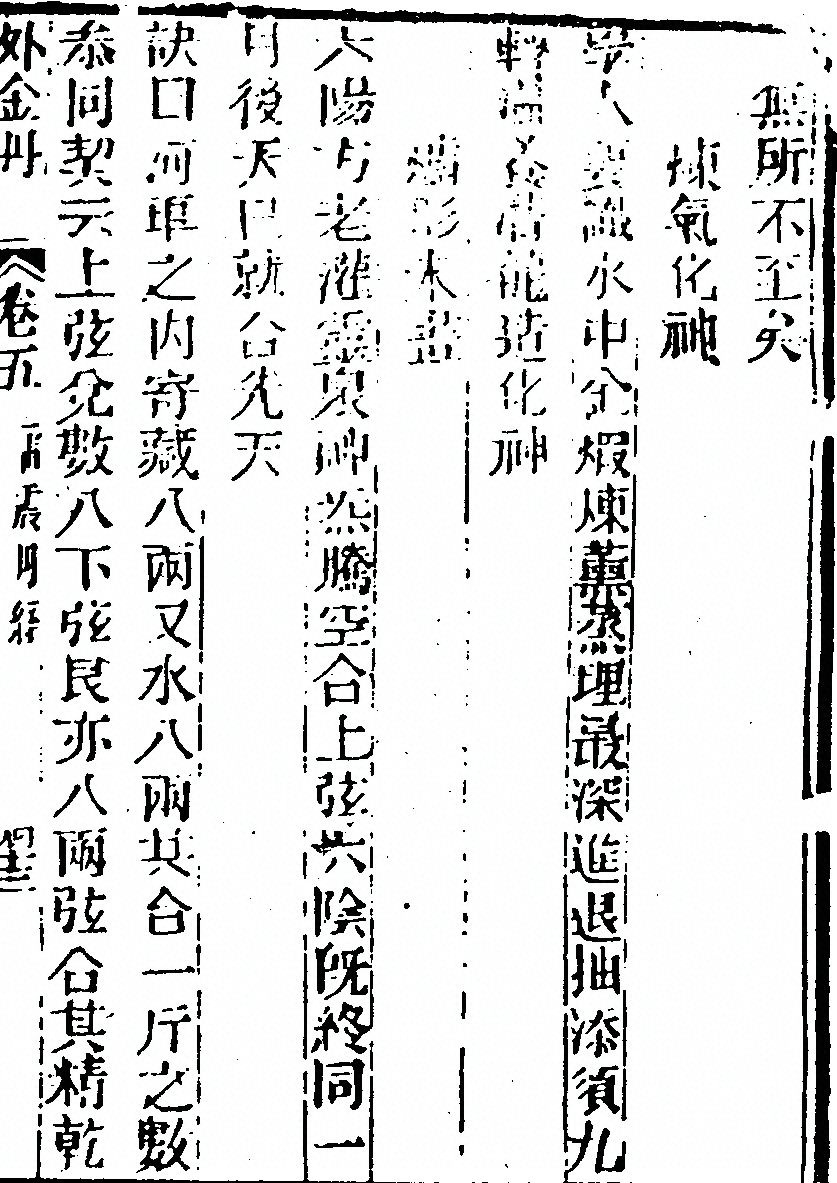 無所不至矣
煉氣化神
學人要識水中金煆煉薰蒸理最深進退抽添須九
轉溫養若能造化神
六陽老灌靈泉神炁騰空合上弦六陰既終同一
月後天已就合先天
訣曰河車之內寄藏八兩又水八兩共合一斤之數
叅同契云上弦兌數八下弦艮亦八兩弦合其精乾
外金丹 卷五